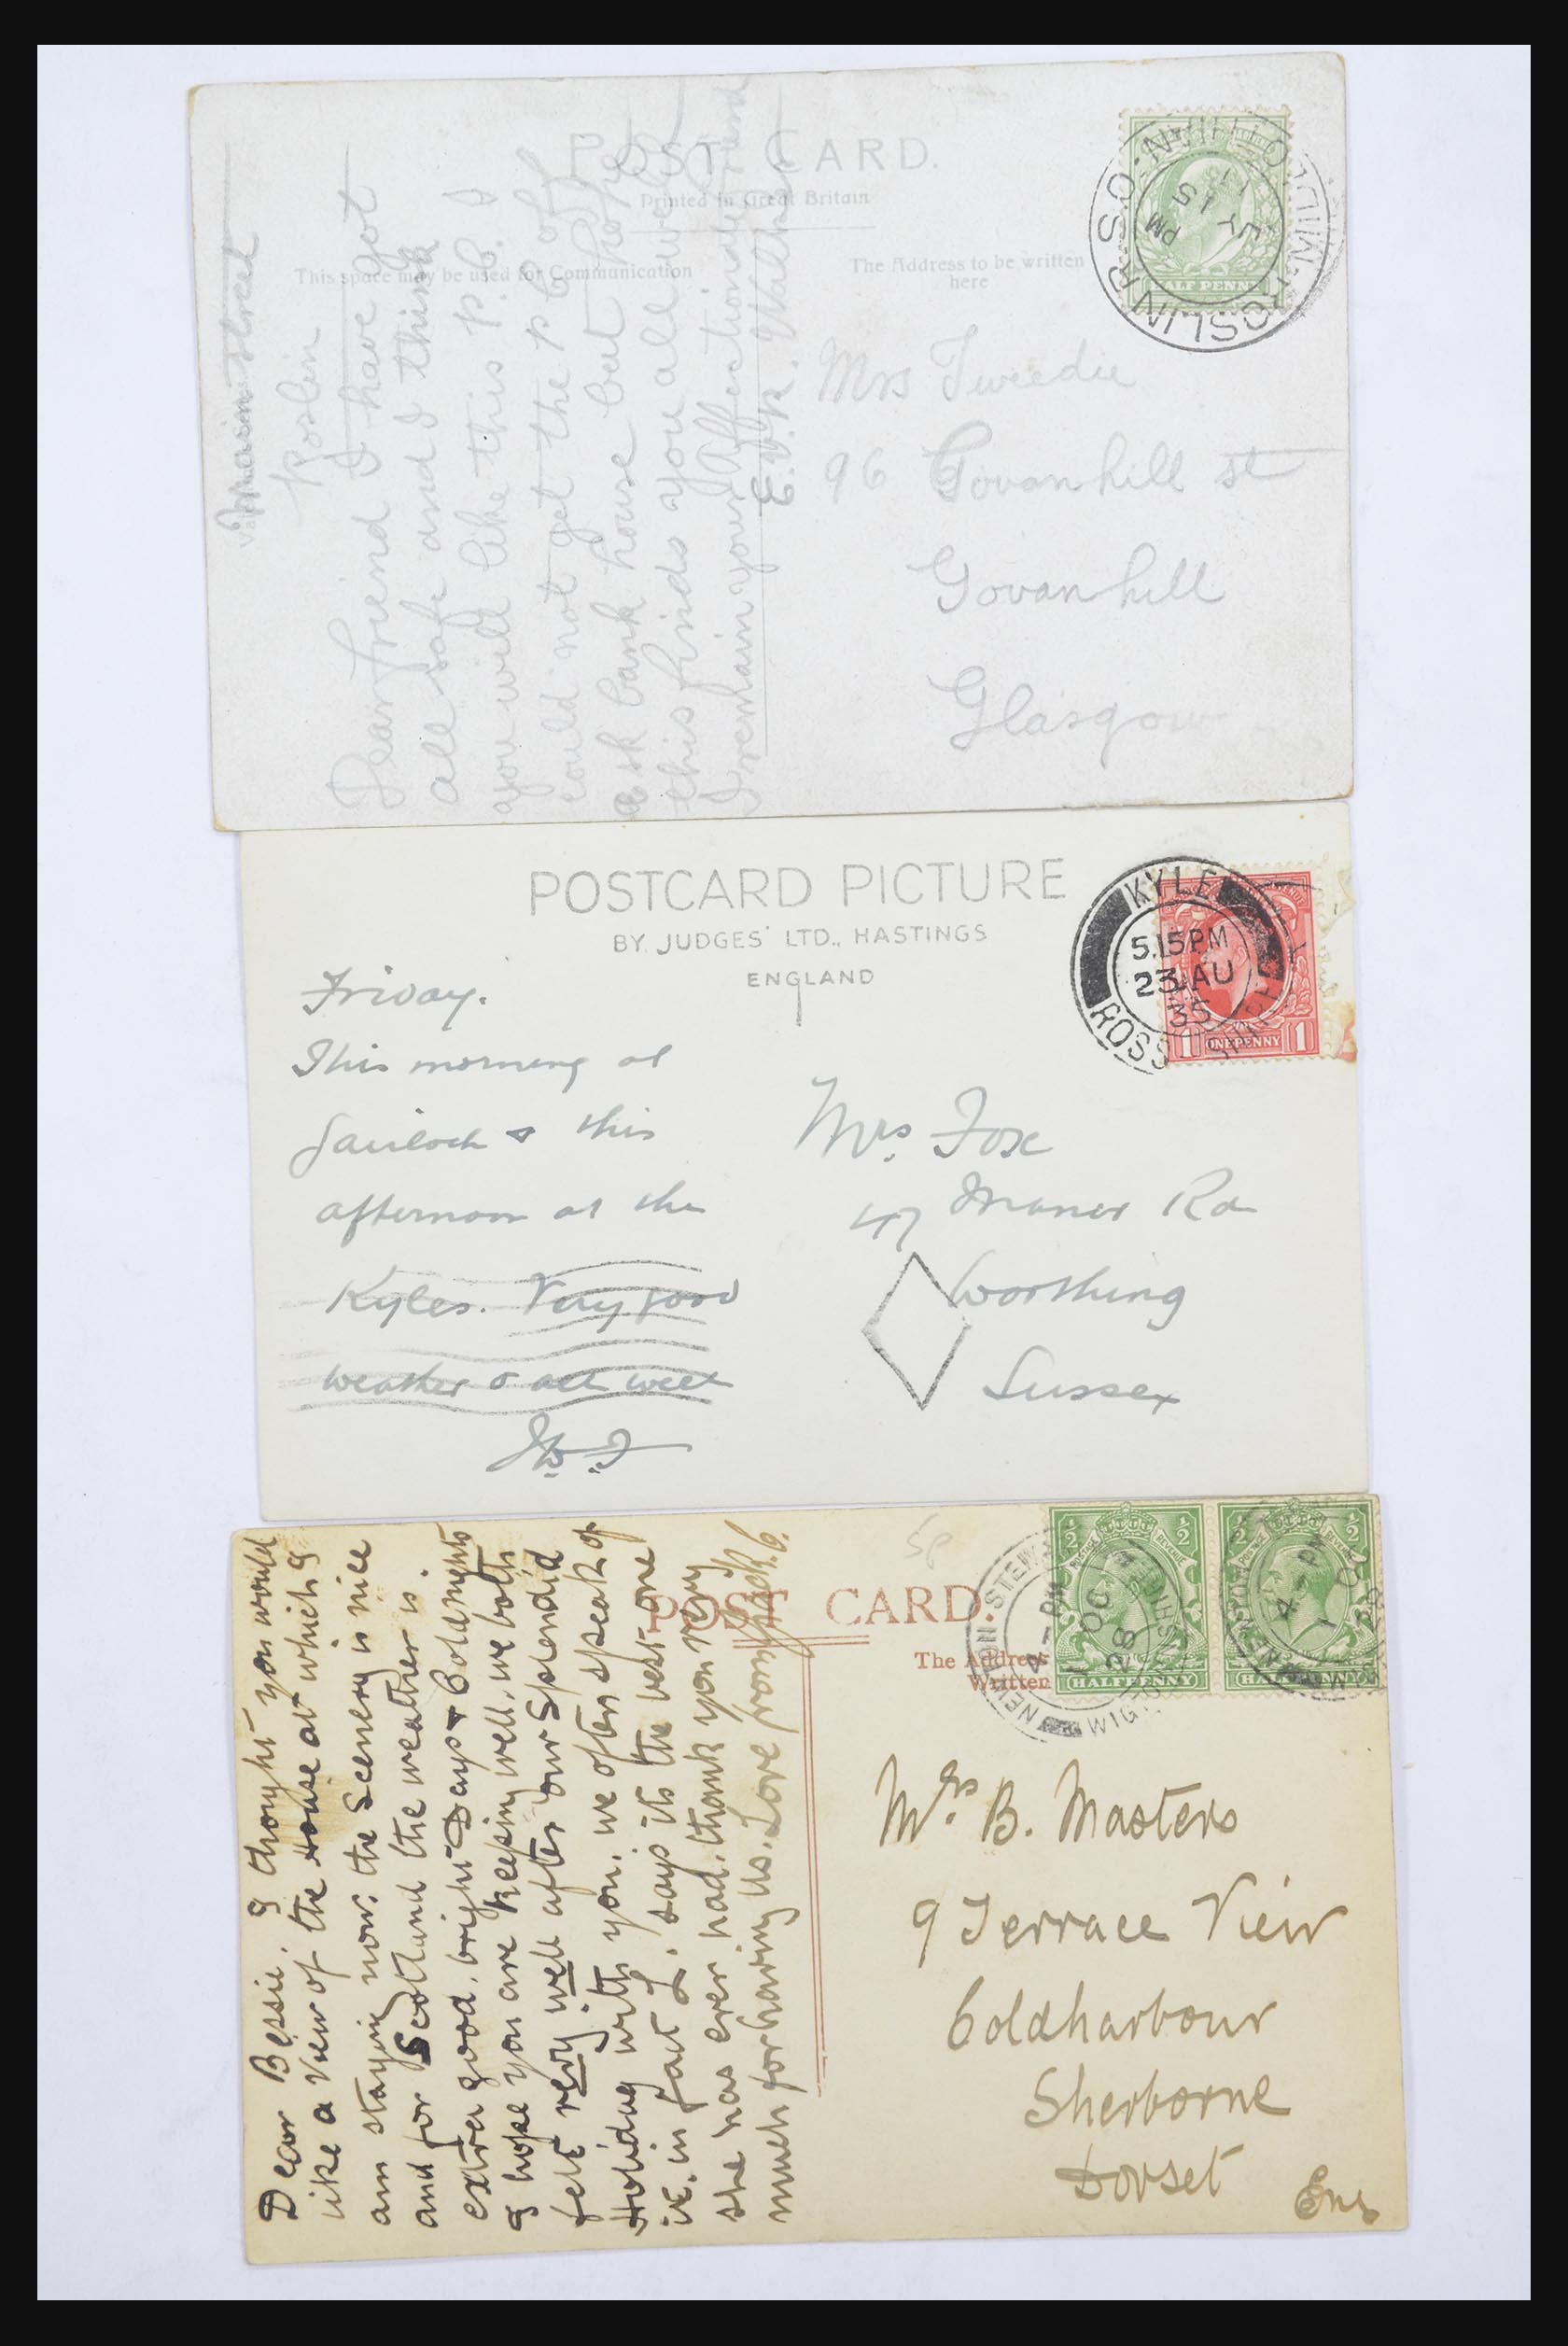 POST CARD.
Printed in Great Britain
This space may be used for Communication
The Address to be written
here
HALF PENNY
ROSLIN R.S.O. MIDLOTHIAN.
PM
JY 15
11
Main Street
Roslin
Dear friend I have got
all safe and I think
you will like this p.c. I
could not get the p c of
ask bank house but hope
this finds you all well
I remain your affectionate friend
E.V.K. Walker
Mrs Tweedie
96 Govanhill st
Govanhill
Glasgow
POSTCARD PICTURE
BY JUDGES' LTD., HASTINGS
ENGLAND
KYLE
5.15PM
23 AU
35
ROSS-SHIRE
1 ONE PENNY 1
Friday.
This morning at
Gairloch & this
afternoon at the
Kyles. Very good
weather & all well
Mrs. Fox
47 Manor Rd
Worthing
Sussex
5p
POST CARD.
The Address
Written
NEWTON STEWART
4 - PM
1 OC
28
WIGTOWNSHIRE
½ POSTAGE REVENUE ½
HALFPENNY
½ POSTAGE REVENUE ½
HALFPENNY
Dear Bessie. I thought you would
like a View of the House at which I
am staying now: the Scenery is nice
and for Scotland the weather is
extra good. bright Days & Cold nights
I hope you are Keeping well. we both
felt very well after our Splendid
Holiday with you. we often speak of
it. in fact L. says its the best one
she has ever had. thank you very
much for having us. Love from Jack. G.
Mrs. B. Masters
9 Terrace View
Coldharbour
Sherborne
Dorset
Eng